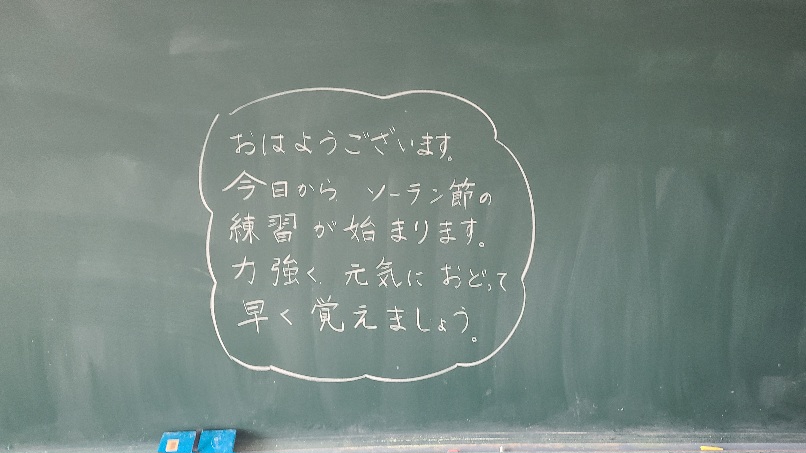 おはようございます。
今日から、ソーラン節の
練習が始まります。
力強く、元気におどって
早く覚えましょう。